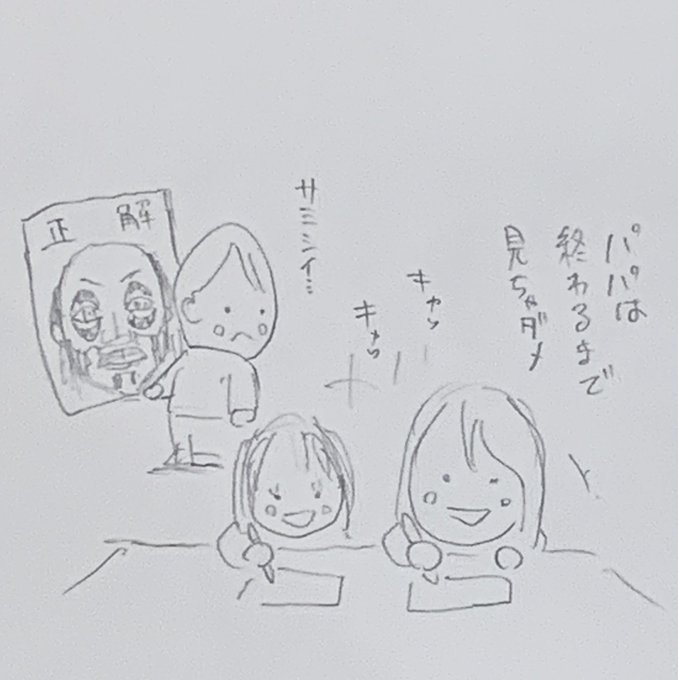 パパは
終わるまで
見ちゃダメ
キャッ
キャッ
サミシイ…
正解